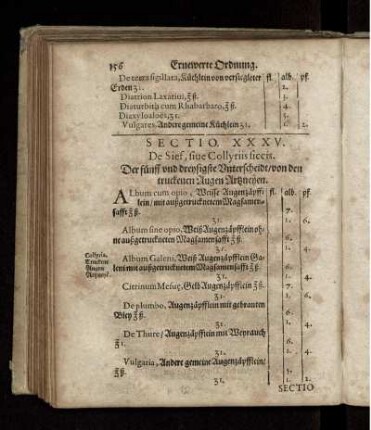 156 Ernewerte Ordnung.
De terra sigillata, Küchlein von versiegleter fl. alb. pf.
Erden ʒ1. 2.
Diatrion Laxativi, ʒß. 3.
Diaturbith cum Rhabarbaro, ʒß. 4.
Diaxyloaloës, ʒ1. 5.
Vulgares, Andere gemeine Küchlein ʒ1. 2.
SECTIO. XXXV.
De Sief, sive Collyriis siccis.
Der fünff vnd dreyssigste Vnterscheidt/von den
truckenen Augen Artzneyen.
ALbum cum opio, Weisse Augenzäpff- fl. alb. pf.
lein/mit außgetrucknetem Magsamen-
safft ℥ß. 7.
ʒ1. 1. 6.
Album sine opio, Weiß Augenzäpfflein oh-
ne außgetruckneten Magsamensafft ℥ß. 6.
ʒ1. 1. 4.
Collyria.
Truckene
Augen
Artzney.
Album Galeni, Weiß Augenzäpfflein Ga-
leni mit außgetrucknetem Magsamensafft ℥ß 6.
ʒ1. 1. 4.
Citrinum Mesuę, Gelb Augenzäpfflein ℥ß. 7.
ʒ1. 1. 6.
De plumbo, Augenzäpfflein mit gebranten
Bley ℥ß. 6.
ʒ1. 1. 4.
De Thure/Augenzäpfflein mit Weyrauch
ʒ1. 1. 4.
Vulgaria, Andere gemeine Augenzäpfflein/
℥ß.
ʒ1. 1. 2.
SECTIO